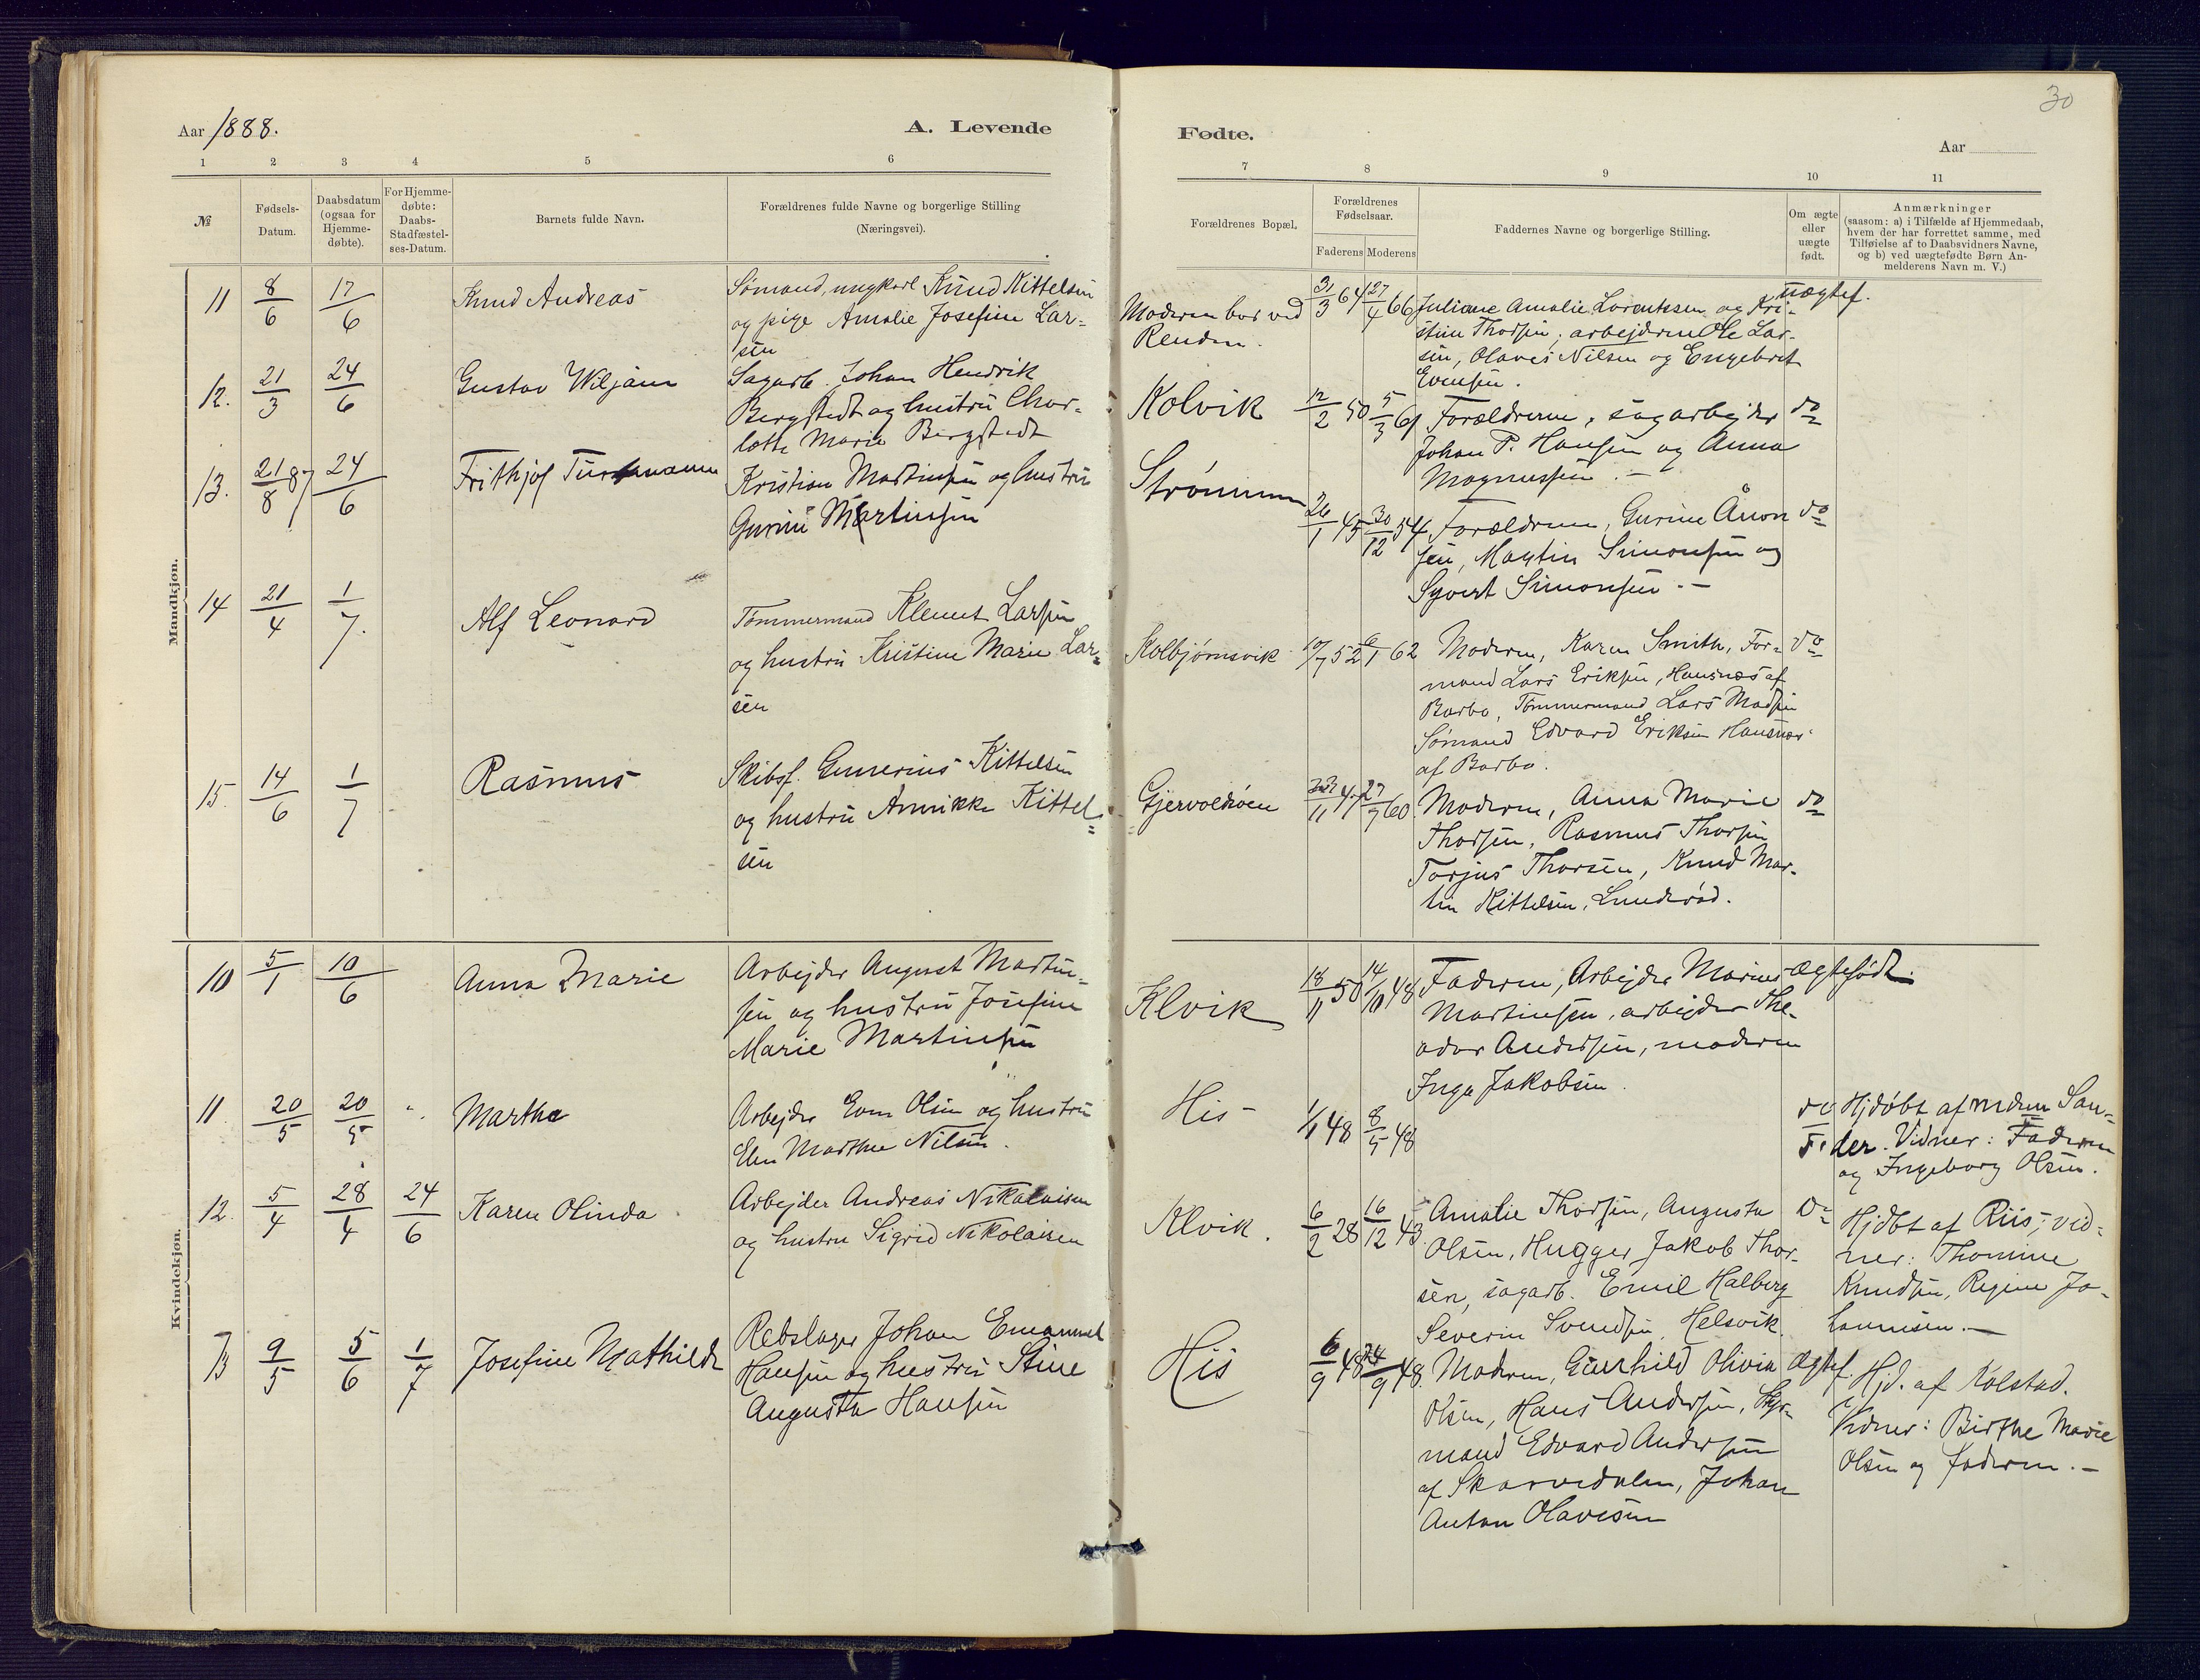 30
Aar 1888.
A. Levende
Fødte.
Aar
1 2 3 4 5 6
7 8 9 10 11
№
Fødsels-
Datum.
Daabsdatum
(ogsaa for
Hjemme-
døbte).
For Hjemme-
døbte:
Daabs-
Stadfæstel-
ses-Datum.
Barnets fulde Navn.
Forældrenes fulde Navne og borgerlige Stilling
(Næringsvei).
Forældrenes Bopæl.
Forældrenes
Fødselsaar.
Faderens Moderens
Faddernes Navne og borgerlige Stilling.
Om ægte
eller
uægte
født.
Anmærkninger
(saasom: a) i Tilfælde af Hjemmedaab,
hvem der har forrettet samme, med
Tilføielse af to Daabsvidners Navne,
og b) ved uægtefødte Børn An-
melderens Navn m. V.)
Mandkjøn.
11 8/6 17/6 Knud Andreas
Sømand, ungkarl Knud Kittelsen
og pige Amalie Josefine Lar=
sen
Moderen bor ved
Renden.
31/3 64 27/4 66
Juliane Amalie Lorentsen og Kri-
stine Thorsen, arbejderne Ole Lar-
sen, Olaves Nilsen og Engebret
Evensen.
uægtef.
12. 21/3 24/6 Gustav Wiljam
Sagarb. Johan Hendrik
Bergstedt og hustru Char-
lotte Marie Bergstedt
Kolvik
12/2 50 5/3 61
Forældrerne, sagarbejder
Johan P. Hansen og Anna
Magnussen. —
do
13. 21/8 87 24/6 Frithjof
Kristian Martinsen og hustru
Gurine Martinsen
Strømmen
26/1 45 30/12 54
Forældrene, Gurine Ånon
sen, Martin Simonsen og
Syvert Simonsen. —
do
14 21/4 1/7. Alf Leonard
Tømmermand Klemet Larsen
og hustru Kristine Marie Lar=
sen
Kolbjørnsvik
10/7 52 6/1 62
Moderen, Karen Smith, For-
mand Lars Eriksen, Hausnæs af
Barbo, Tømmermand Lars Madsen
Sømand Edvard Eriksen Hausnæs
af Barbo.
do
15. 14/6 1/7 Rasmus
Skibsf. Gunerius Kittelsen
og hustru Annikke Kittel=
sen
Gjervoldsøen
/11 47 27/7 60
Moderen, Anna Marie
Thorsen, Rasmus Thorsen
Torjus Thorsen, Knud Mar-
tin Kittelsen, Lunderød.
do
Kvindekjøn.
10 5/1 10/6 Anna Marie
Arbejder August Martin-
sen og hustru Josefine
Marie Martinsen
Klvik
18/11 50 14/10 48
Faderen, Arbejder Marius
Martinsen, arbejder The-
odor Andersen, moderen
Inga Jakobsen.
Ægtefødt.
11. 20/5 20/5 " Martha
Arbejder Even Olsen og hustru
Elen Marthe Nilsen.
His
1/1 48 8/5 48
do
Hjdøbt af mdren San-
der. Vidner: Faderen
og Ingeborg Olsen.
12. 5/4 28/4 24/6 Karen Olinda
Arbejder Andreas Nikolaisen
og hustru Sigrid Nikolaisen
Klvik.
6/2 28 16/12 43.
Amalie Thorsen, Augusta
Olsen, Hugger Jakob Thor-
sen, sagarb. Emil Halberg
Severin Svendsen, Helsvik.
do
Hjdbt af Riis; vid-
ner: Thomine
Knudsen, Regine Jo-
hannisen. —
13 9/5 5/6 1/7 Josefine Mathilde
Rebslager Johan Emanuel
Hansen og hustru Stine
Augusta Hansen
His
6/9 48 24/9 48.
Moderen, Gunhild Olivia
Olsen, Hans Andersen, Styr-
mand Edvard Andersen
af Skarvedalen, Johan
Anton Olavesen
Ægtef.
Hjd. af Kolstad.
Vidner: Birthe Marie
Olsen og faderen. —